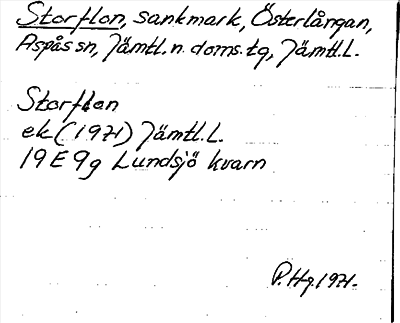 Storflon, sankmark, Österlångan,
Aspås sn, Jämtl.n. doms.tg, Jämtl.L.
Storflon
ek (1971) Jämtl.L.
19E9g Lundsjö kvarn
P.Hg.1971.